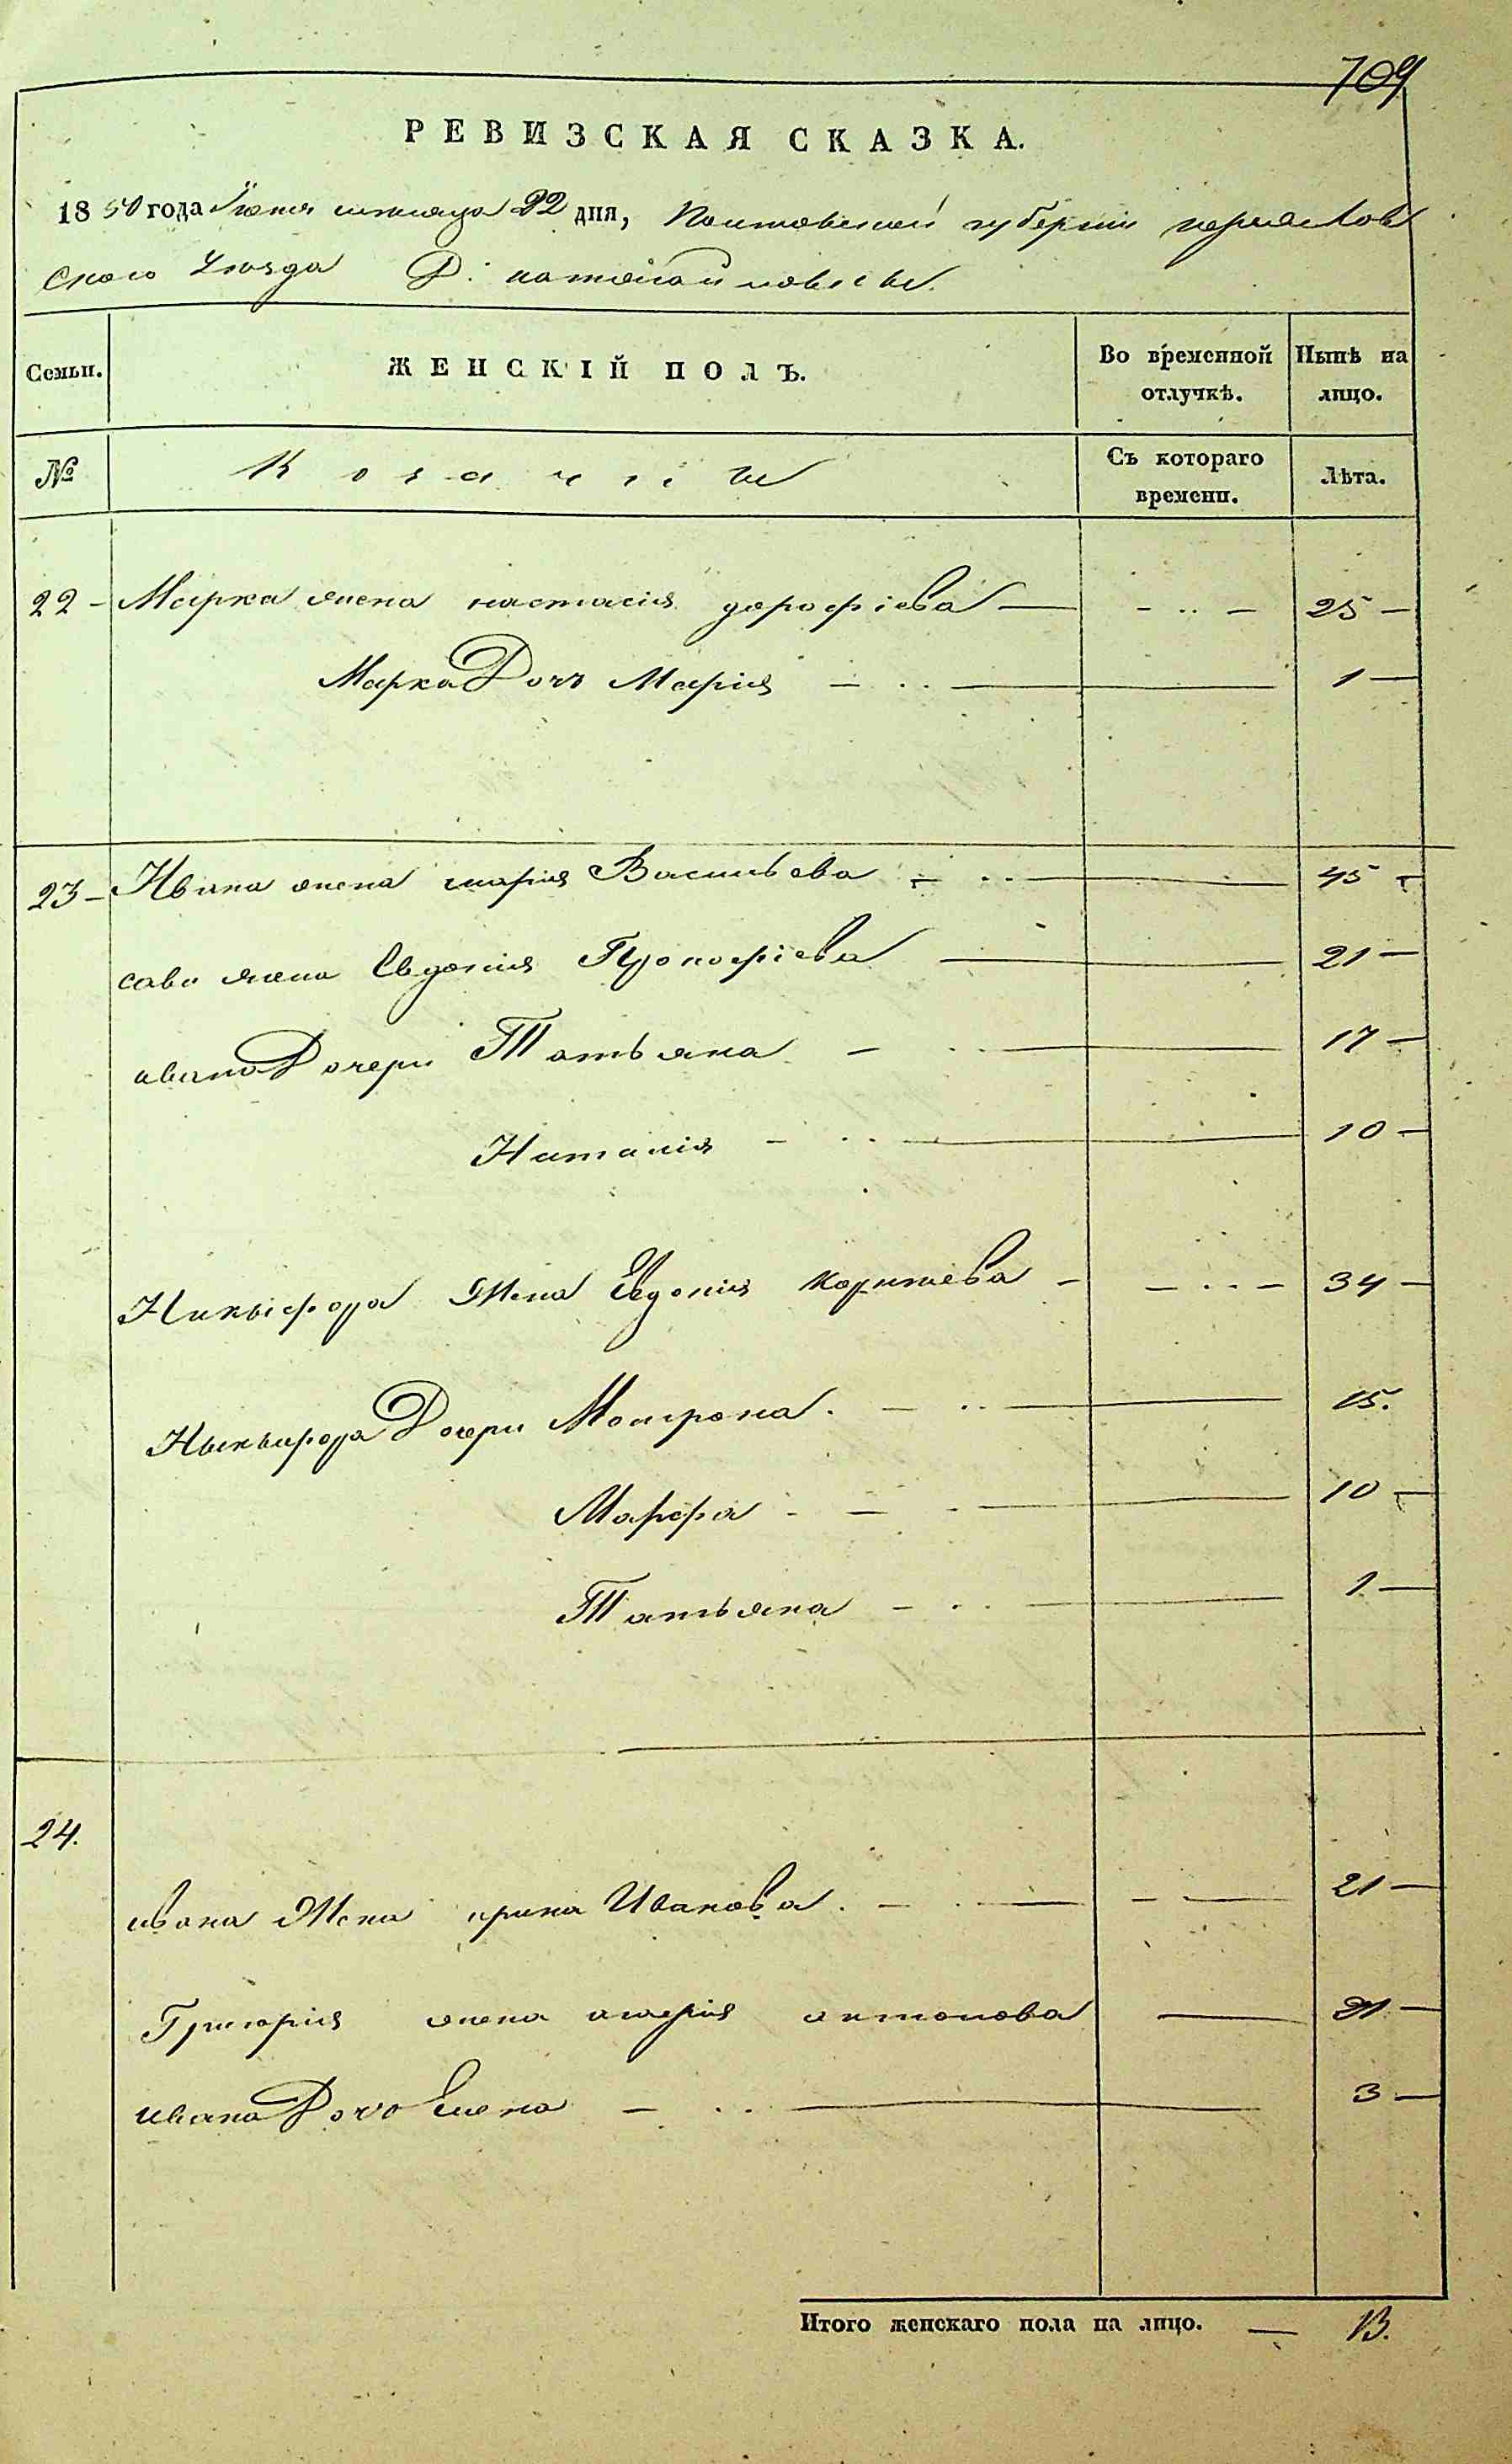 709
РЕВИЗСКАЯ СКАЗКА.
1850 года Июня месяца 22 дня, Полтавской губернии переяслов
ского уезда Д:
Семьи. ЖЕНСКІЙ ПОЛЪ. Во временной отлучкѣ. Нынѣ на лицо.
№ Козачіи Съ котораго времени. Лѣта.
22 - Марка жена настасия дорофіева — - .. - 25 —
Марка Дочь Мария - .. — 1 —
23 - Ивана жена мария Васильева - .. — 45 -
савы жена Евдокия Прокофіева — 21 —
ивана Дочери Татьяна - .. — 17 —
Наталия - .. — 10 —
Никыфора Жена Евдокия - - .. - 34 —
Никыфора Дочери Мотрона. - .. — 15.
Марфа - - . — 10 —
Татьяна - .. — 1 —
24.
ивана Жена ирина Иванова. - . — - — 21 —
Григория жена мария антонова — 21 —
ивана Дочь Елена - .. — 3 —
Итого женскаго пола на лицо. — 13.